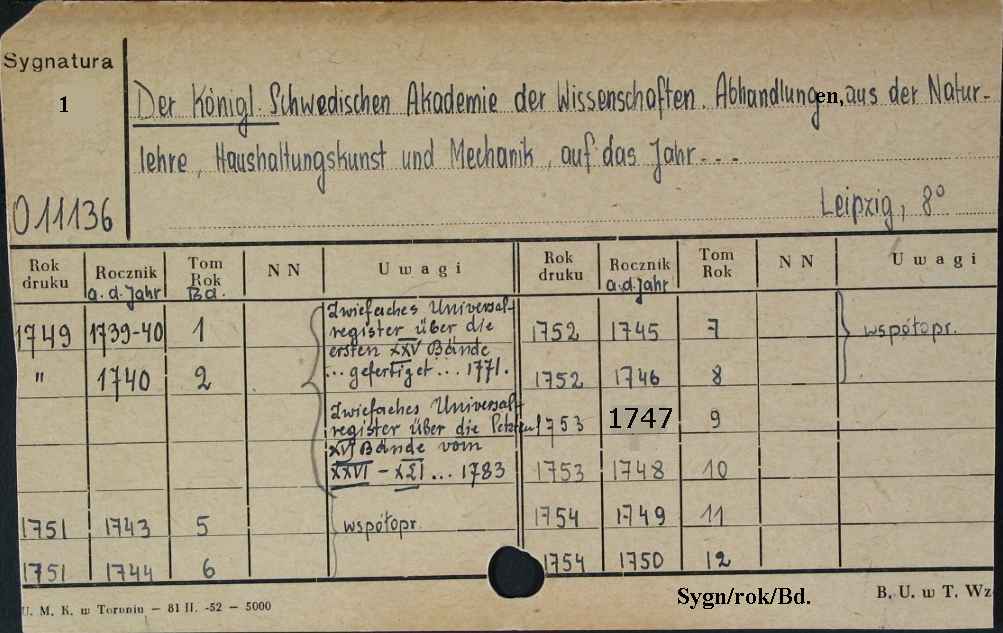 Sygnatura
1
Der Königl. Schwedischen Akademie der Wissenschaften. Abhandlungen, aus der Natur-
lehre, Haushaltungskunst und Mechanik, auf das Jahr...
O 11136
Leipzig, 8°
Rok druku Rocznik a.d. Jahr Tom Rok Bd. NN Uwagi
1749 1739-40 1
" 1740 2
1751 1743 5
1751 1744 6
Zwiefaches Universal-
register über die
ersten XXV Bände
... gefertiget ... 1771.
Zwiefaches Universal-
register über die letzten
XVI Bände vom
XXVI - XLI ... 1783
współopr.
Rok druku Rocznik a.d. Jahr Tom Rok NN Uwagi
1752 1745 7 współopr.
1752 1746 8
1753 1747 9
1753 1748 10
1754 1749 11
1754 1750 12
U. M. K. w Toruniu – 81 II. -52 – 5000
Sygn/rok/Bd.
B. U. w T. Wz